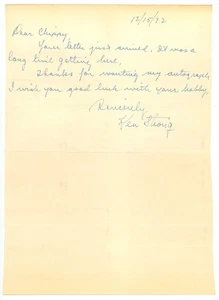 12/15/22
Dear Chippy
Your letter just arrived. It was a
long time getting here,
Thanks for wanting my autograph,
I wish you good luck with your hobby.
Sincerely
Ken Strong